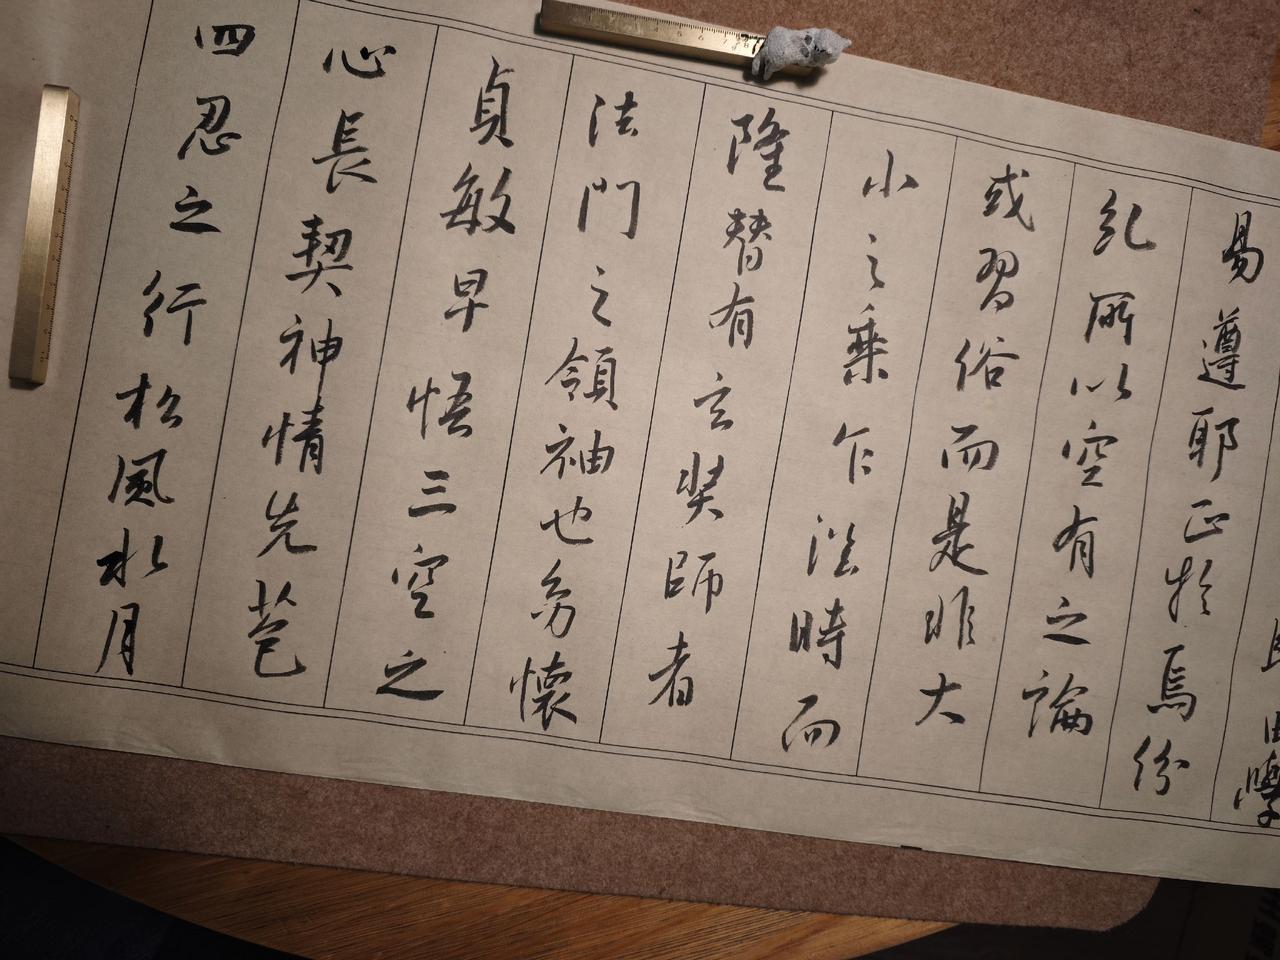 易遵耶正於焉紛
糺所以空有之論
或習俗而是非大
小之乘乍沿時而
隆替有玄奘師者
法門之領袖也幼懷
貞敏早悟三空之
心長契神情先苞
四忍之行松風水月